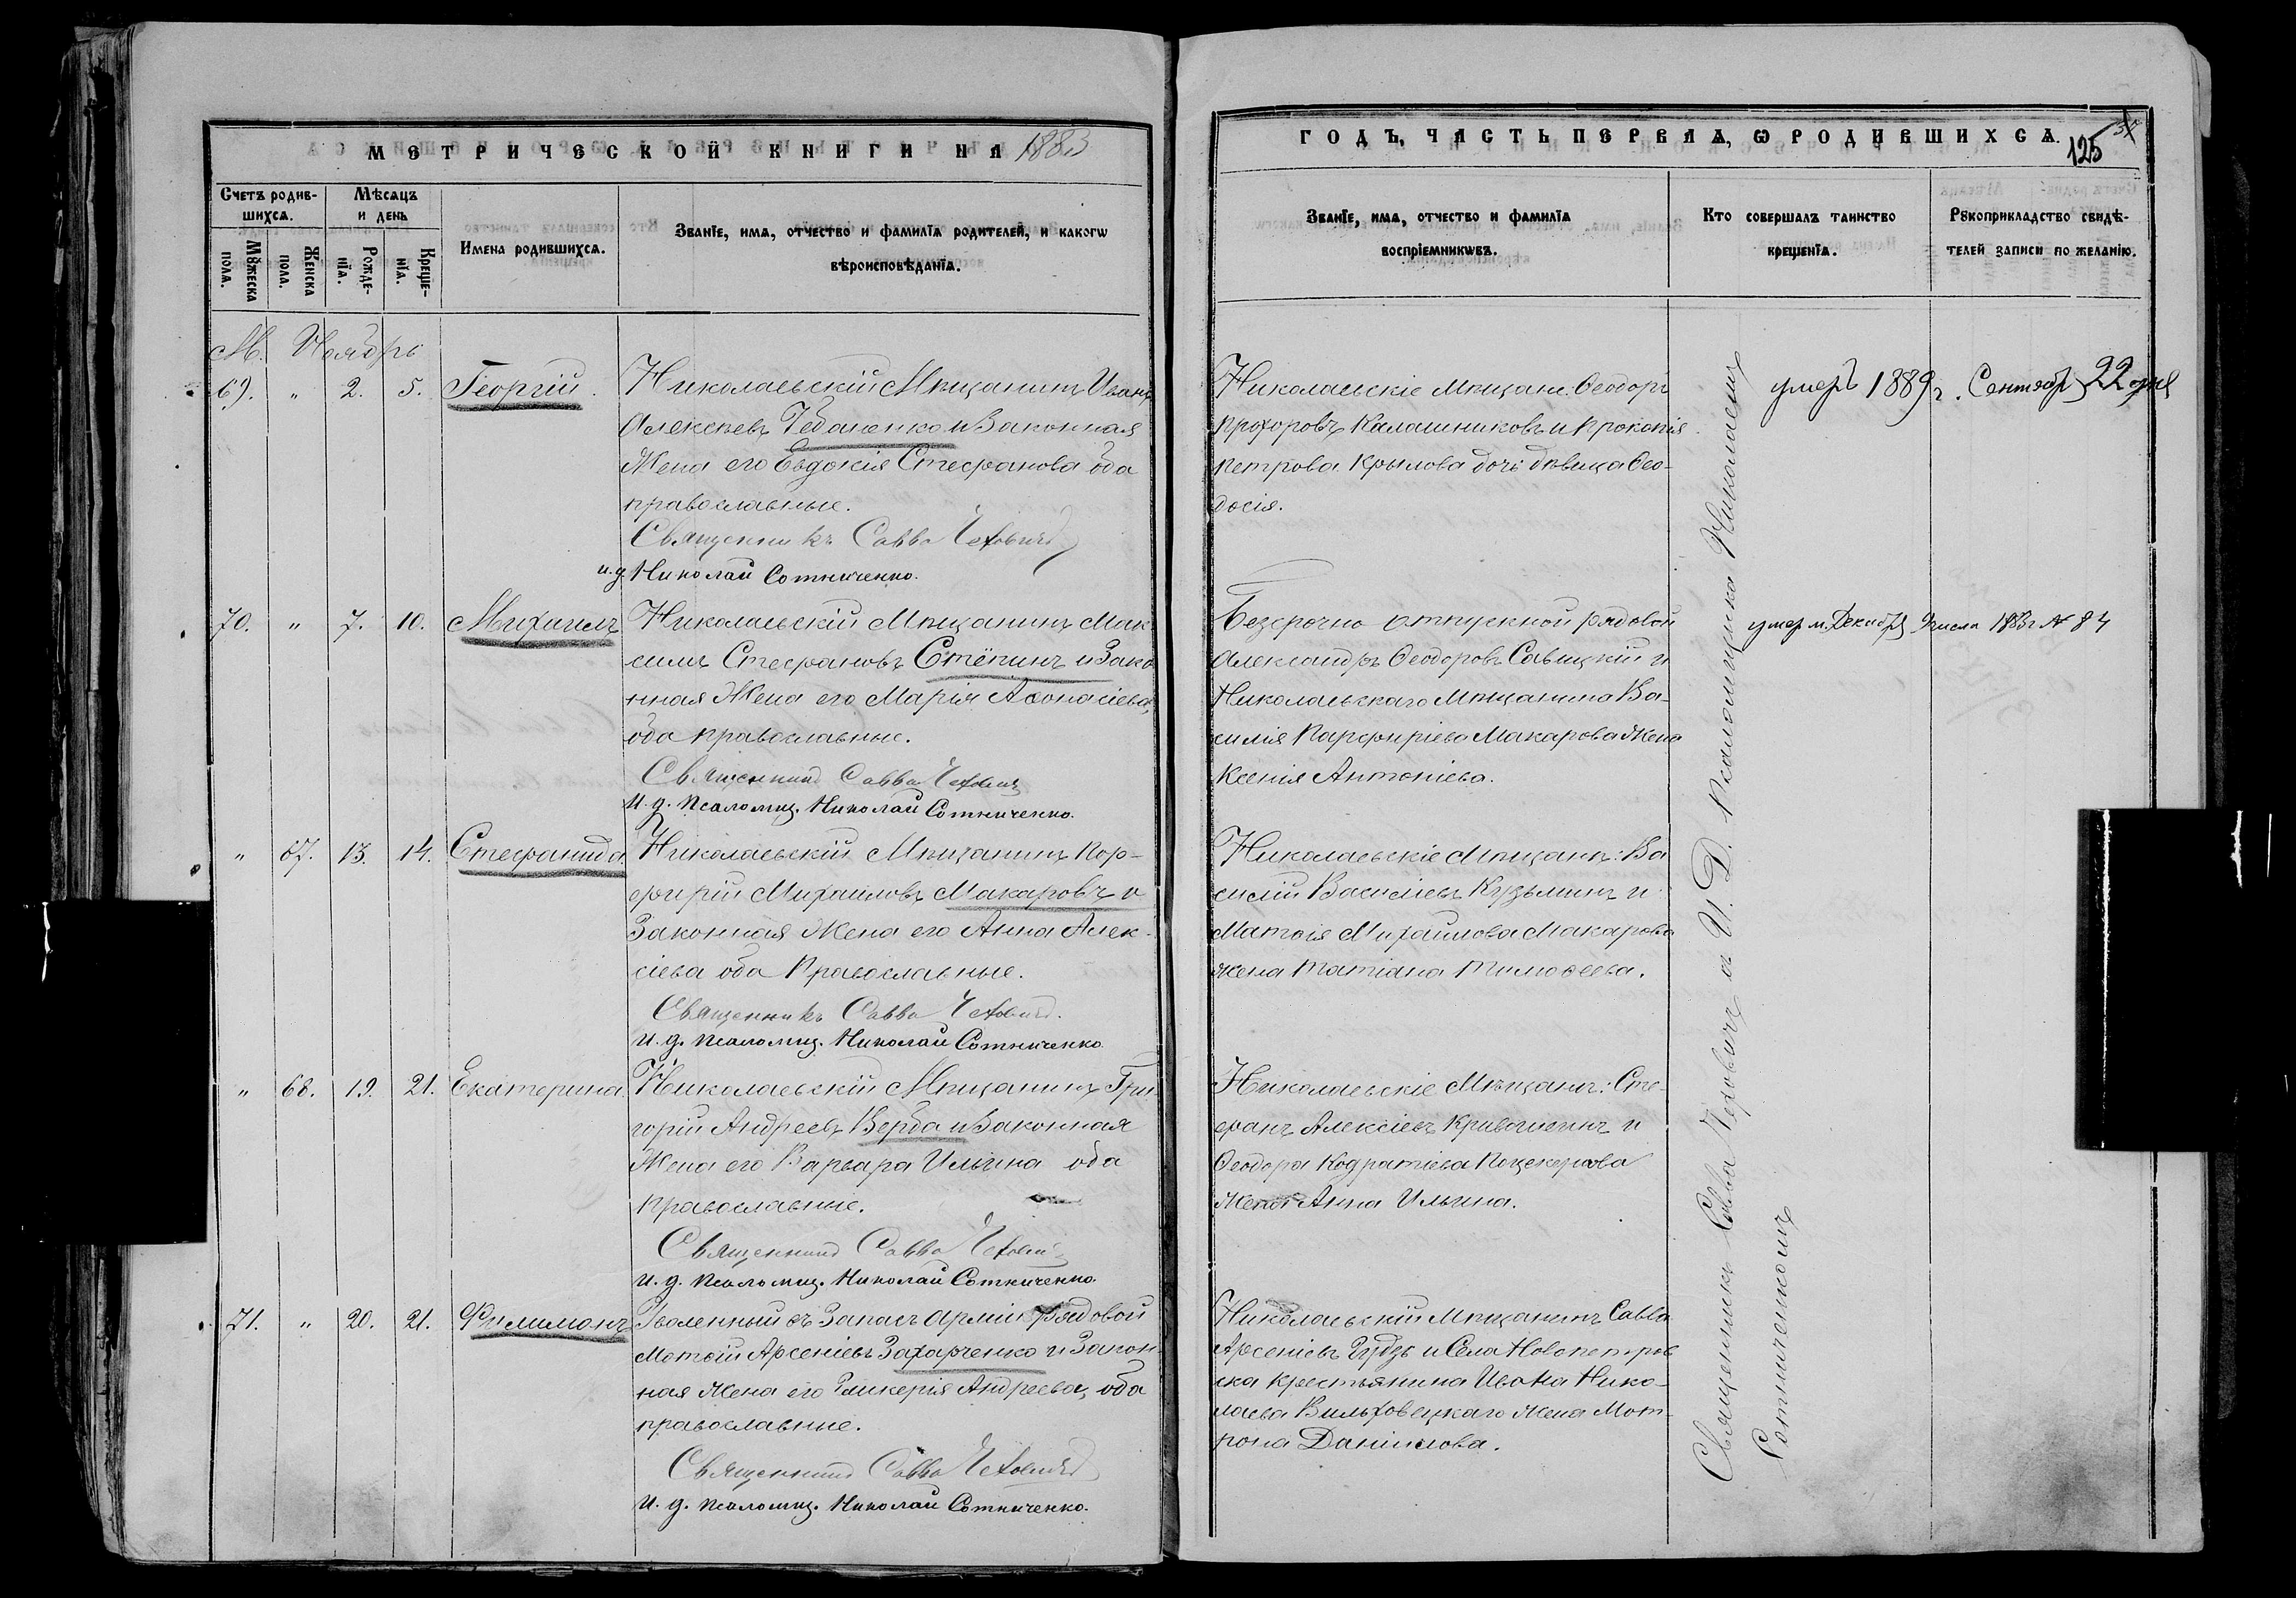 МЕТРИЧЕСКОЙ КНИГИ НА 1883
Счетъ родив-
шихсѧ.
Мѣсѧцъ
и день
Мꙋжеска
пола.
Женска
пола.
Рожде-
нїѧ.
Креще-
нїѧ.
Имена родившихсѧ.
Званїе, имѧ, отчество и фамилїѧ родителей, и какогѡ
вѣроисповѣданїѧ.
М. Ноябрь
69. " 2. 5. Георгій.
Николаевскій Мѣщанинъ Иванъ
Алексѣевъ и Законная
Жена его Евдокія Стефанова оба
православные.
Священникъ Савва Чехович
и.д. Николай Сотниченко.
70. " 7. 10. Михаилъ
Николаевскій Мѣщанинъ Мак-
симъ Стефановъ Стёпинъ и Зако
нная Жена его Марія Аѳонасіева,
оба православные.
Священникъ Савва Чехович
И. д. Псаломщ. Николай Сотниченко.
" 67. 13. 14. Стефанида
Николаевскій Мѣщанинъ Пор-
фирій Михаиловъ Макаровъ и
Законная Жена его Анна Алек-
сіева оба Православные.
Священникъ Савва Чехович.
И. д. Псаломщ. Николай Сотниченко
" 68. 19. 21. Екатерина.
Николаевскій Мѣщанинъ Гри
горій Андреевъ Верба и Законная
Жена его Варвара Ильина оба
православные.
Священникъ Савва Чехович
И. д. Псаломщ. Николай Сотниченко.
71. " 20. 21. Филимонъ
Уволенный въ Запасъ Арміи рядовой
Матѳій Арсеніевъ Захарченко и Закон
ная Жена его Гликерія Андреева, оба
православные.
Священникъ Савва Чехович
И. д. Псаломщ. Николай Сотниченко.
ГОДЪ, ЧАСТЬ ПЕРВАѦ, Ѡ РОДИВШИХСѦ.
125
Званїе, имѧ, отчество и фамилїѧ
воспрїемникѡвъ.
Кто совершалъ таинство
крещенїѧ.
Рꙋкоприкладство свидѣ-
телей записи по желанїю.
Николаевскіе Мѣщане: Ѳеодоръ
Прохоровъ Калашниковъ и Прокопія
Петрова Крылова дочь дѣвица Ѳео-
досія.
умеръ 1889 г. Сентябр 22 дня
Безсрочно отпускной рядовой
Александръ Ѳеодоровъ Савицкій и
Николаевскаго Мѣщанина Ва-
силія Парфиріева Макарова Жена
Ксенія Антоніева.
умер м. Декабря числа 1883 г № 84
Николаевскіе Мѣщане: Ва
силій Василіевъ Кузьминъ и
Матѳія Михайлова Макарова
жена Татіана Тимоѳеева.
Николаевскіе Мѣщане: Сте-
фанъ Алексіевъ Кривошеинъ и
Ѳеодора Кодратіева
Жена Анна Ильина.
Николаевскій Мѣщанинъ Савва
Арсеніевъ Гудзь и Села Новопетров
ска Крестьянина Ивана Нико-
лаева Вильховецкаго Жена Мот-
рона Даніилова.
Священникъ Савва Чеховичъ с И. Д. Псаломщика Николаемъ
Сотниченкомъ